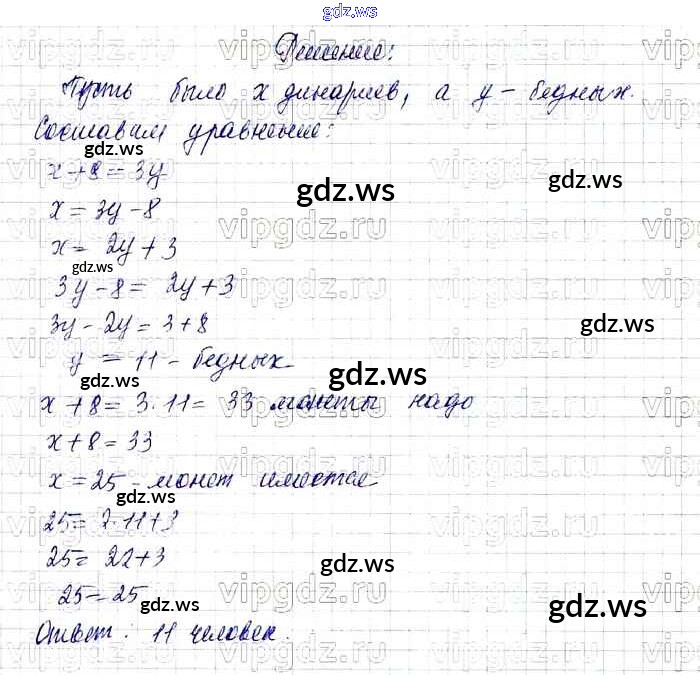 gdz.ws
Решение:
Пусть было x динариев, а y - бедных.
Составим уравнение:
gdz.ws
x+8=3y
gdz.ws
gdz.ws
x=3y-8
x=2y+3
gdz.ws
3y-8=2y+3
3y-2y=3+8
gdz.ws
y=11 - бедных
gdz.ws
gdz.ws
x+8=3·11=33 монеты надо
x+8=33
x=25 - монет имеется
gdz.ws
25=2·11+3
25=22+3
gdz.ws
25=25
gdz.ws
gdz.ws
Ответ: 11 человек.
vipgdz.ru